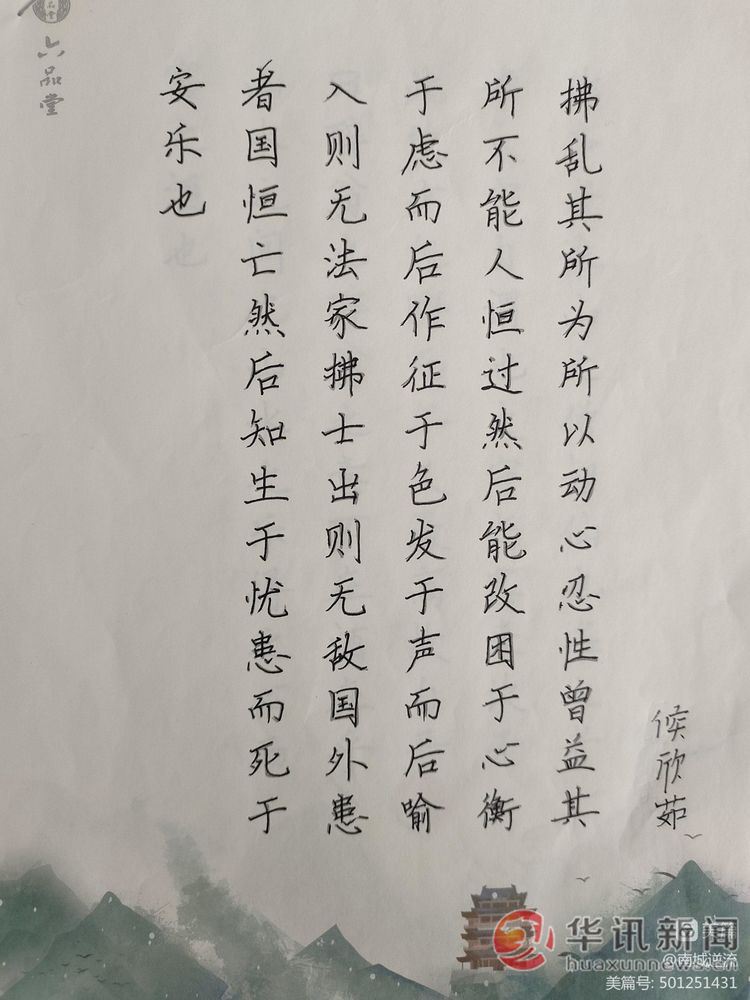 侯欣茹
拂乱其所为所以动心忍性曾益其
所不能人恒过然后能改困于心衡
于虑而后作征于色发于声而后喻
入则无法家拂士出则无敌国外患
者国恒亡然后知生于忧患而死于
安乐也
六品堂
华讯新闻
huaxunnews.cn
美篇
@南城逆流
美篇号: 501251431